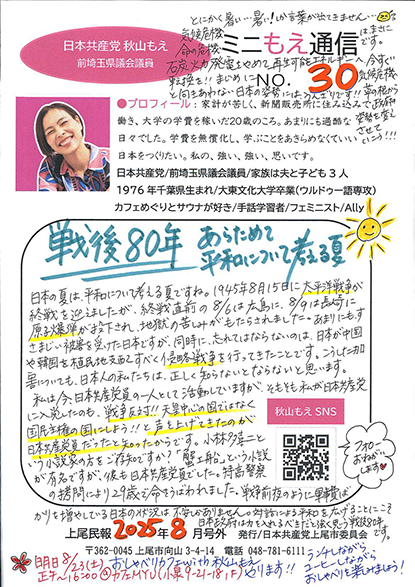 とにかく暑い…暑い!しか言葉が出てきません…
気候危機はまさに
命の危機です。
石炭火力発電をやめて再生可能エネルギーへ、今すぐ
転換を!!まじめに気候危機
と向きあわない日本の姿勢にはうんざりです!!草の根から政府の
姿勢を変え
させて
いこう!!!
日本共産党 秋山もえ
前埼玉県議会議員
ミニもえ通信
NO. 30
●プロフィール:家計が苦しく、新聞販売所に住み込みで
働き、大学の学費を稼いだ20歳のころ。あまりにも過酷な
日々でした。学費を無償化し、学ぶことをあきらめなくていい
日本をつくりたい。私の、強い、強い、思いです。
日本共産党/前埼玉県議会議員/家族は夫と子ども3人
1976年千葉県生まれ/大東文化大学卒業(ウルドゥー語専攻)
カフェめぐりとサウナが好き/手話学習者/フェミニスト/Ally
戦後80年 あらためて
平和について考える夏
日本の夏は、平和について考える夏ですね。1945年8月15日に太平洋戦争が
終戦を迎えましたが、終戦直前の8/6は広島に、8/9は長崎に
原子爆弾が投下され、地獄の苦しみがもたらされました。あまりにもす
さまじい被害を受けた日本ですが、同時に、忘れてはならないのは、日本が中国
や韓国を植民地支配すべく侵略戦争を行ってきたことです。こうした加
害についても、日本人の私たちは、正しく知らないとならないと思います。
私は今、日本共産党の一人として活動していますが、そもそも私が日本共産党
に入党したのも、戦争反対!!天皇中心の国ではなく
国民主権の国にしよう!!と声を上げてきたのが
日本共産党だったと知ったからです。小林多喜二と
いう小説家の方をご存知ですか?「蟹工船」という小説
が有名ですが、彼も日本共産党員でした。特高警察
の拷問により29歳で命をうばわれました。戦争前夜のように軍事費ば
かりを増やしている日本の状況は不安しかありません。対話による平和を広げることにこそ
日本政府は力を入れるべきだと強く思う戦後80年です。
秋山もえ SNS
フォロー
おねがい
します
上尾民報 2025年8月号外 発行/日本共産党上尾市委員会
〒362-0045 上尾市向山3-4-14 電話 048-781-6111
明日8/23(土)おしゃべりカフェwith秋山もえ
正午〜16:00 @カフェMYU(小泉9-21-18,F)やります!!
ランチしながら
コーヒーしながら
おしゃべりを楽しみましょう!